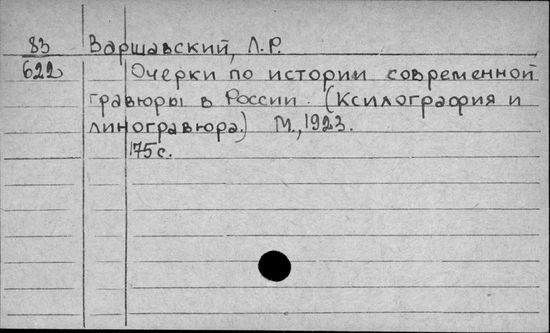 83 Варшавский, Л.Р.
622 Очерки по истории современной
гравюры в России. (Ксилография и
линогравюра.) М., 1923.
175 с.